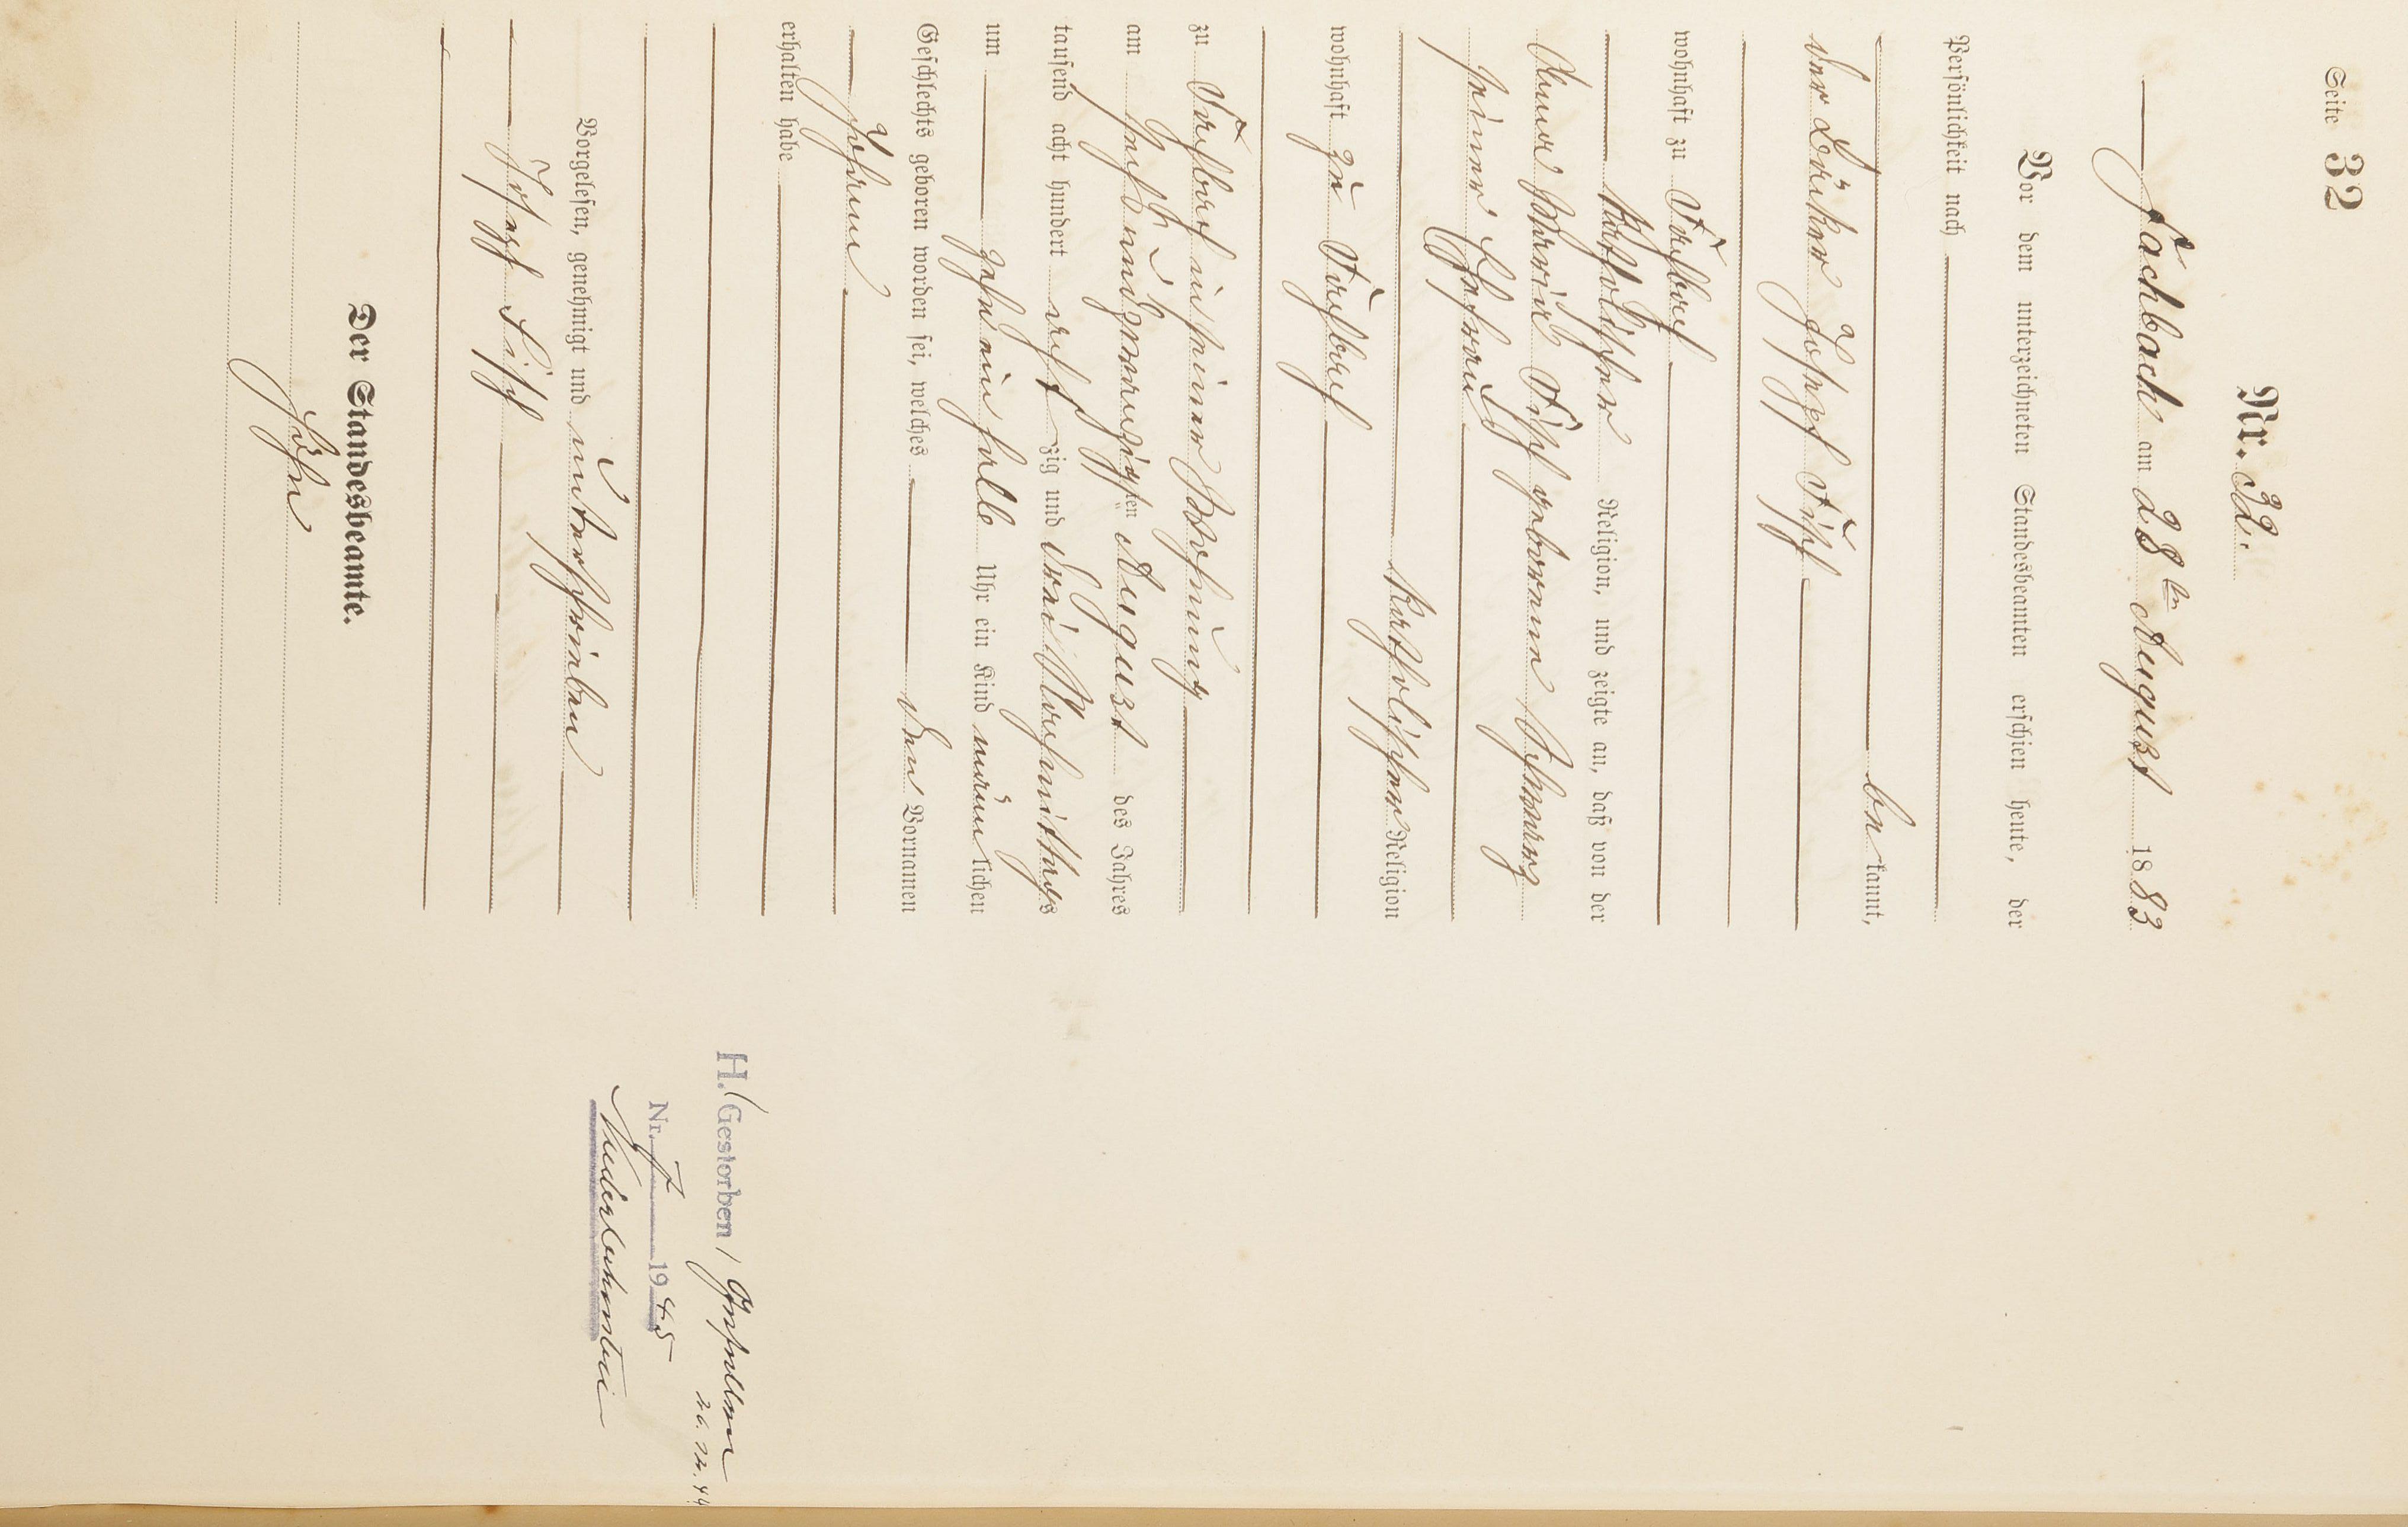 Seite 32
Nr. 32.
Fachbach am 28ten August 1883
Vor dem unterzeichneten Standesbeamten erschien heute, der
Persönlichkeit nach
be kannt,
der Bäcker Johann Josef Fisch
wohnhaft zu Fachbach
katholischer Religion, und zeigte an, daß von der
Anna Maria Fisch geborene Schwarz
seiner Ehefrau
katholischer Religion
wohnhaft zu Fachbach
zu Fachbach in seiner Wohnung
am sechs und zwanzigsten August des Jahres
tausend acht hundert acht zig und drei Nachmittags
um zehn ein halb Uhr ein Kind männ lichen
Geschlechts geboren worden sei, welches den Vornamen
Johann
erhalten habe
Vorgelesen, genehmigt und unterschrieben
Josef Fisch
Der Standesbeamte.
Höhn
H. Gestorben / Gefallen
26.12.44
Nr. 7 1945
Niederlahnstein